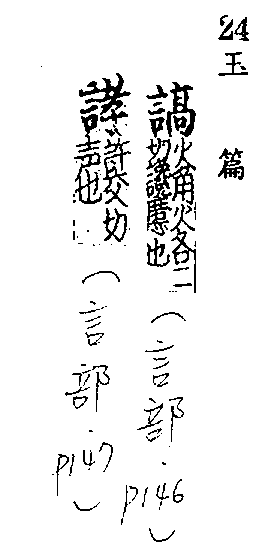 24 玉篇
謞 火角火各二
切讒慝也
(言部.p146)
誟 許交切
声也
(言部.p147)